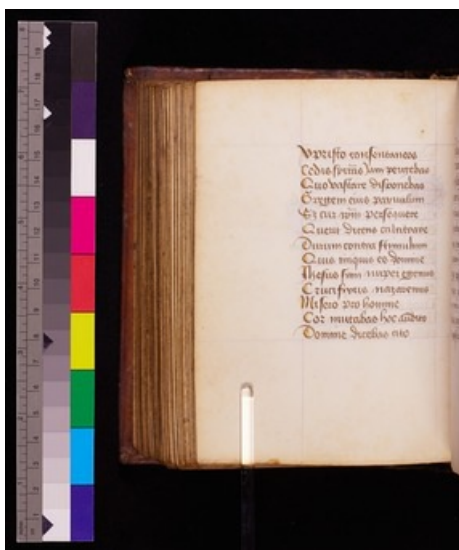 Xpristo consentaneos
Cedis Jam pergebas
Quo vastare disponebas
Gregem eius parvulum
Et cur persequere
Querit dicens calcitrare
Durum contra stimulum
Quis inquis es domine
Ihesus sum egenus
Crucifixus nazarenus
Misero pro homine
Cor mutabas hoc audito
Domine dicebas cito